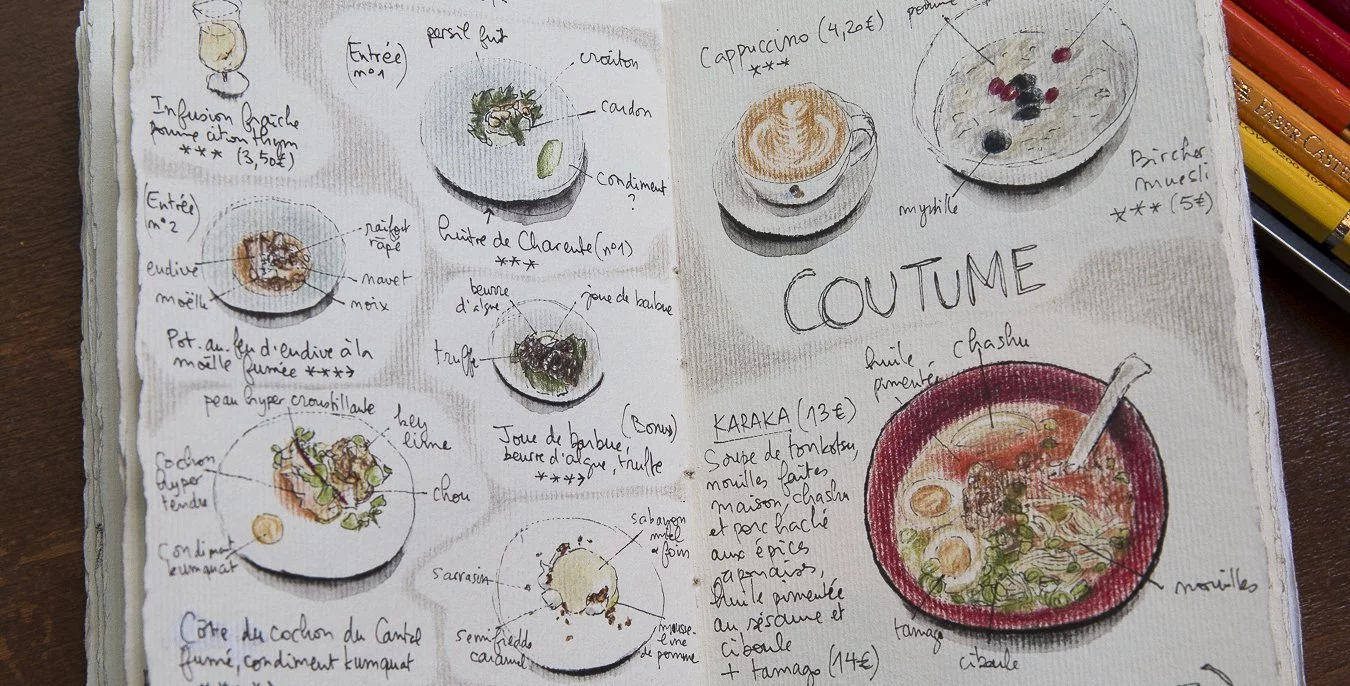 Infusion fraîche
pomme citron thym
*** (3,50€)
(Entrée
n°1)
persil frit
croûton
cardon
condiment
?
huître de Charente (n°1)
***
(Entrée
n°2)
raifort
râpé
endive
navet
moëlle
noix
Pot-au-feu d'endive à la
moëlle fumée ***
beurre
d'algue
joue de barbue
truffe
(Bonus)
Joue de barbue,
beurre d'algue, truffe
***
peau hyper croustillante
key
lime
cochon
hyper
tendre
chou
condiment
kumquat
Côte de cochon du Cantal
fumé, condiment kumquat
sabayon
miel
foin
sarrasin
semifreddo
caramel
mousse-
line
de pomme
Cappuccino (4,20€)
***
myrtille
Bircher
muesli
*** (5€)
COUTUME
huile
pimentée
chashu
KARAKA (13€)
Soupe de tonkotsu,
nouilles faites
maison, chashu
et porc haché
aux épices
japonaises,
huile pimentée
au sésame et
ciboule
+ tamago (14€)
nouilles
tamago
ciboule
FABER-CASTE